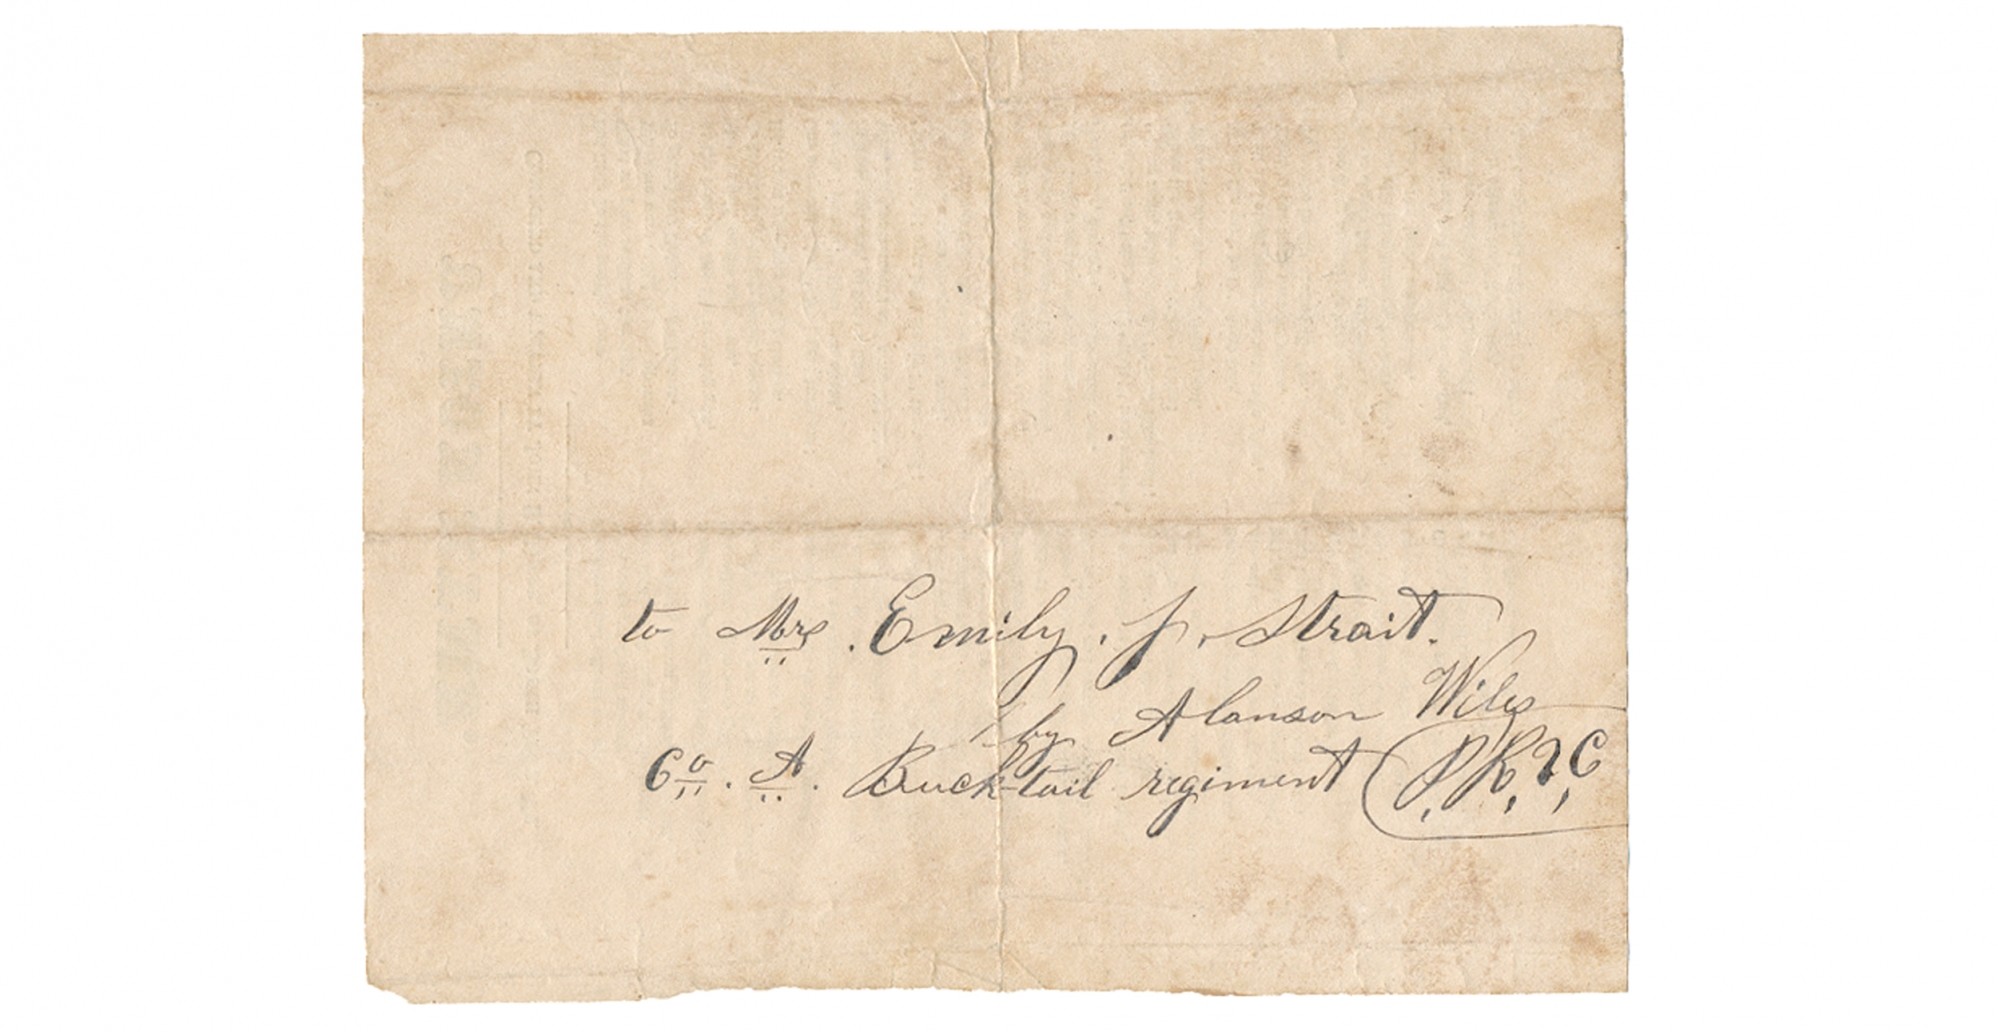 to Mrs. Emily. J. Strait.
by Alanson Wiles
Co. A. Bucktail regiment P. R. V. C